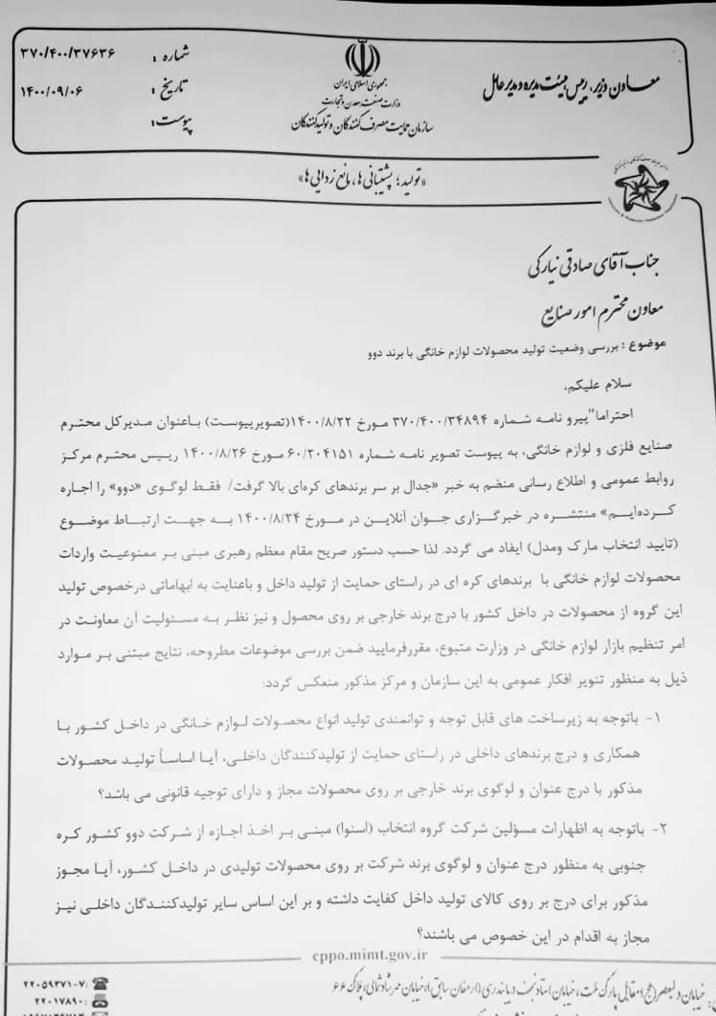 شماره : ۳۷۰/۴۰۰/۳۷۶۳۶
تاریخ : ۱۴۰۰/۰۹/۰۶
پیوست:
جمهوری اسلامی ایران
وزارت صنعت، معدن و تجارت
سازمان حمایت مصرف کنندگان و تولیدکنندگان
معاون وزیر، رییس هیئت مدیره و مدیر عامل
«تولید؛ پشتیبانی ها، مانع زدایی ها»
جناب آقای صادقی نیارکی
معاون محترم امور صنایع
موضوع : بررسی وضعیت تولید محصولات لوازم خانگی با برند دوو
سلام علیکم،
احتراما"پیرو نامه شماره ۳۷۰/۴۰۰/۳۴۸۹۴ مورخ ۱۴۰۰/۸/۲۲(تصویرپیوست) باعنوان مدیرکل محترم
صنایع فلزی و لوازم خانگی، به پیوست تصویر نامه شماره ۶۰/۲۰۴۱۵۱ مورخ ۱۴۰۰/۸/۲۶ رییس محترم مرکز
روابط عمومی و اطلاع رسانی منضم به خبر «جدال بر سر برندهای کره‌ای بالا گرفت/ فقط لوگوی «دوو» را اجاره
کرده‌ایم» منتشره در خبرگزاری جوان آنلاین در مورخ ۱۴۰۰/۸/۲۴ به جهت ارتباط موضوع
(تایید انتخاب مارک ومدل) ایفاد می گردد. لذا حسب دستور صریح مقام معظم رهبری مبنی بر ممنوعیت واردات
محصولات لوازم خانگی با برندهای کره ای در راستای حمایت از تولید داخل و باعنایت به ابهاماتی درخصوص تولید
این گروه از محصولات در داخل کشور با درج برند خارجی بر روی محصول و نیز نظر به مسئولیت آن معاونت در
امر تنظیم بازار لوازم خانگی در وزارت متبوع، مقررفرمایید ضمن بررسی موضوعات مطروحه، نتایج مبتنی بر موارد
ذیل به منظور تنویر افکار عمومی به این سازمان و مرکز مذکور منعکس گردد:
۱- باتوجه به زیرساخت های قابل توجه و توانمندی تولید انواع محصولات لوازم خانگی در داخل کشور با
همکاری و درج برندهای داخلی در راستای حمایت از تولیدکنندگان داخلی، آیا اساساً تولید محصولات
مذکور با درج عنوان و لوگوی برند خارجی بر روی محصولات مجاز و دارای توجیه قانونی می باشد؟
۲- باتوجه به اظهارات مسؤلین شرکت گروه انتخاب (اسنوا) مبنی بر اخذ اجازه از شرکت دوو کشور کره
جنوبی به منظور درج عنوان و لوگوی برند شرکت بر روی محصولات تولیدی در داخل کشور، آیا مجوز
مذکور برای درج بر روی کالای تولید داخل کفایت داشته و بر این اساس سایر تولیدکنندگان داخلی نیز
مجاز به اقدام در این خصوص می باشند؟
cppo.mimt.gov.ir
خیابان ولیعصر(عج)، مقابل پارک ملت، خیابان استاد نجف دریابندری (ارمغان سابق)، خیابان مهرشاد شمالی، پلاک ۶۶
۲۲۰۵۹۳۷۱-۷:
۲۲۰۱۷۸۹۰ :